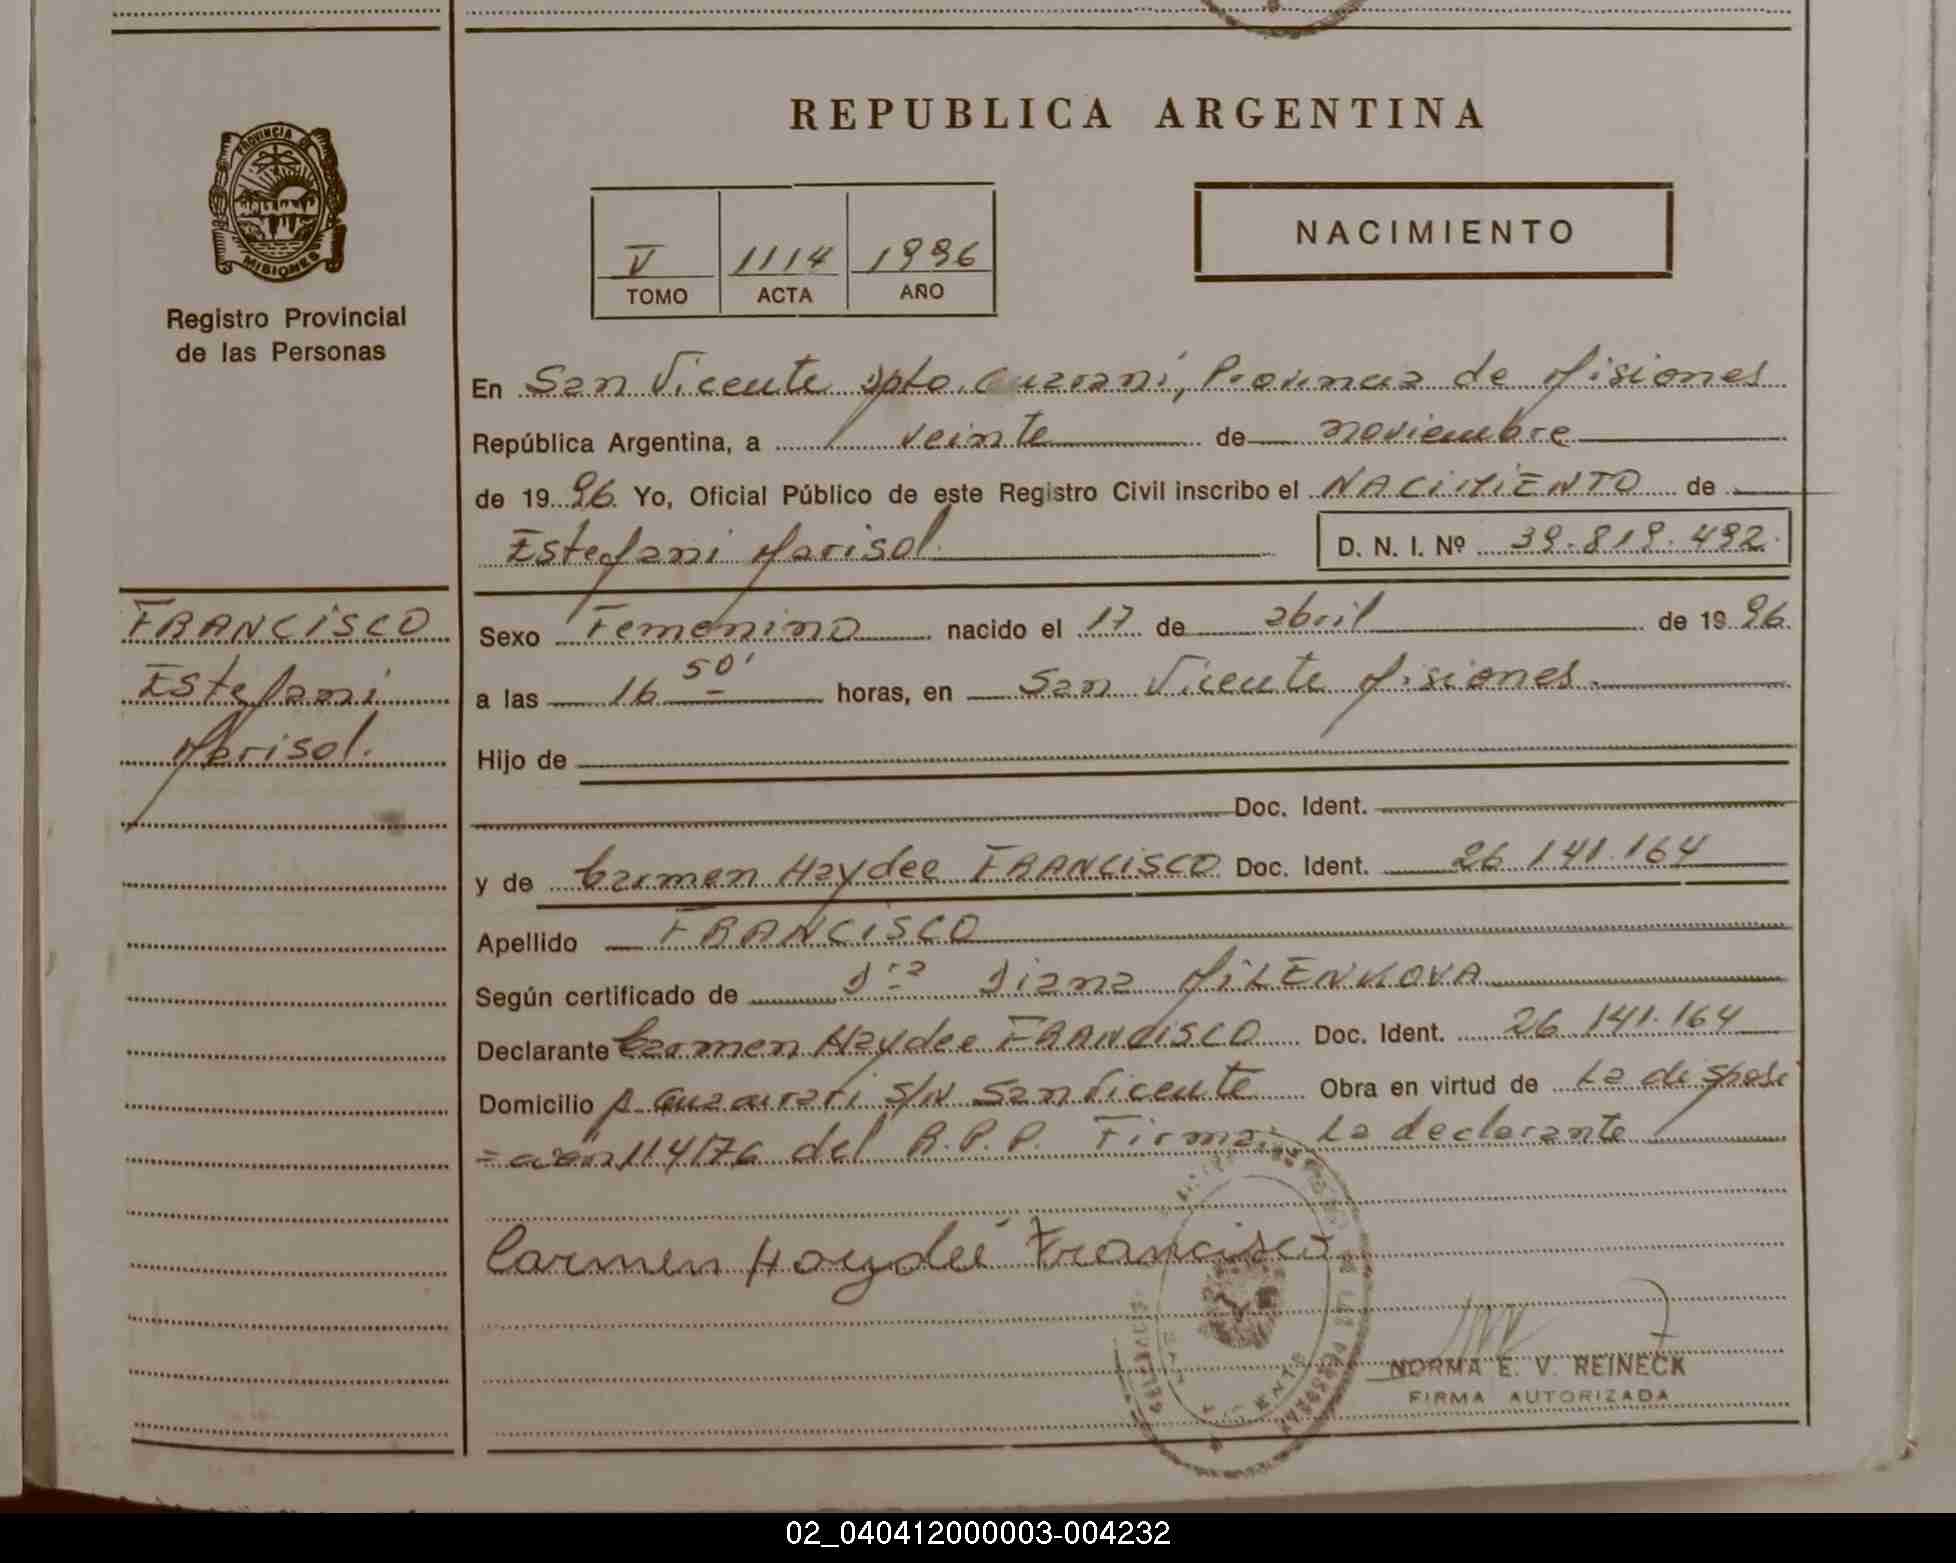 REPUBLICA ARGENTINA
PROVINCIA DE
MISIONES
Registro Provincial
de las Personas
V 1114 1996
TOMO ACTA AÑO
NACIMIENTO
En San Vicente Dpto. Guarani, Provincia de Misiones
República Argentina, a veinte de noviembre
de 1996. Yo, Oficial Público de este Registro Civil inscribo el NACIMIENTO de
Estefani Marisol. D. N. I. Nº 39.819.492.
FRANCISCO
Estefani
Marisol.
Sexo Femenino nacido el 17 de abril de 1996.
a las 16 50' horas, en San Vicente Misiones.
Hijo de
Doc. Ident.
y de Carmen Haydee FRANCISCO Doc. Ident. 26.141.164
Apellido FRANCISCO
Según certificado de Dra Diana MILENKOVA
Declarante Carmen Haydee FRANCISCO Doc. Ident. 26.141.164
Domicilio A. Guacurari S/N San Vicente Obra en virtud de La disposi
=ción 114/76 del R.P.P. Firma: La declarante
Carmen Haydeé Francisco
NORMA E. V. REINECK
FIRMA AUTORIZADA
02_040412000003-004232